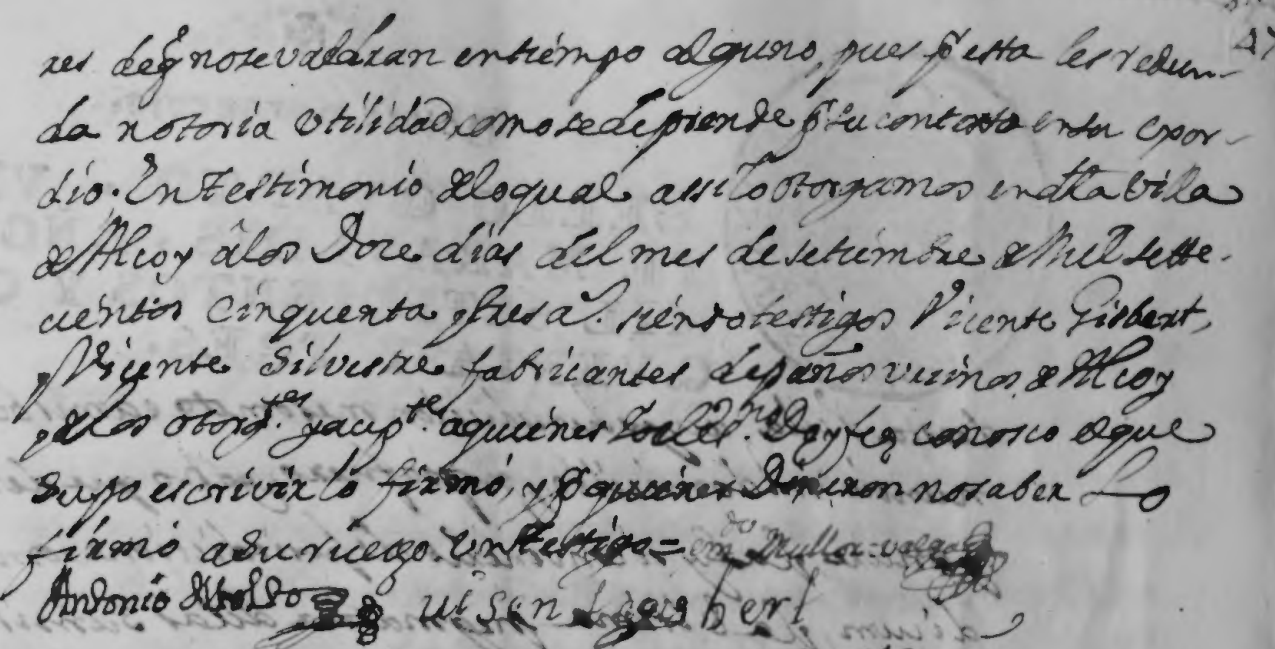 47
res deq̃ nose valdran entiempo alguno, pues p̃ esta les redun-
da notoria Utilidad, como se deprende p̃ su contexto ensu exor-
dio. En Testimonio deloqual assilo otorgamos endc̃ha Villa
de Alcoy âlos Doze dias del mes de setiembre de Mil sette-
cientos Cinquenta ytres a.ˢ siendo testigos Vicente Gisbert,
yVicente Silvestre fabricantes depaños vecinos de Alcoy
ydelos otorg.ᵗᵉˢ yacep.ᵗᵉˢ aquienes Yo el es.ⁿᵒ Doyfeę conosco elque
Supo escrivir lo firmó, y p̃ quienes Dixeron nosaber Lo
firmó asu ruego. Un Testigo = em.ᵈᵒ Mullor=valga
Antonio
uisen gisbert